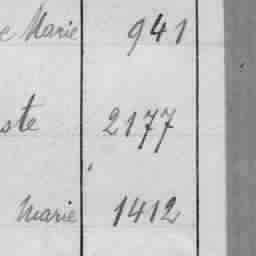 e Marie 941
ste 2177
Marie 1412